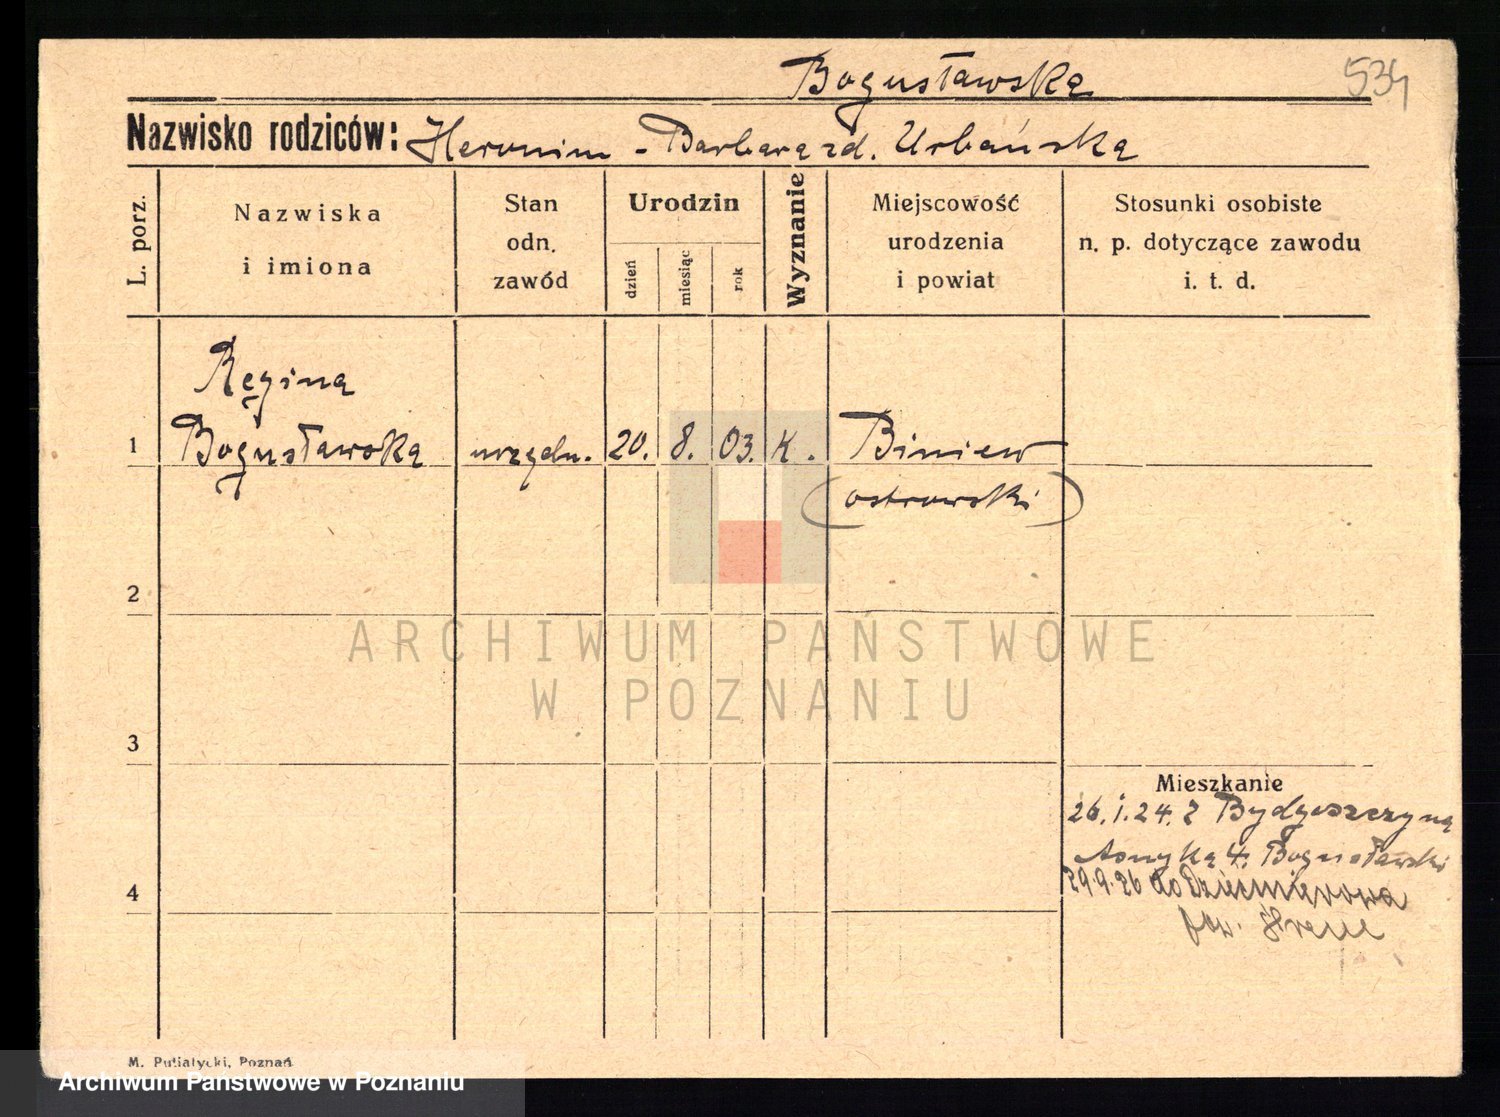 Bogusławska 534
Nazwisko rodziców: Heronim - Barbara zd. Urbańska
L. porz.
Nazwiska
i imiona
Stan
odn.
zawód
Urodzin
dzień
miesiąc
rok
Wyznanie
Miejscowość
urodzenia
i powiat
Stosunki osobiste
n. p. dotyczące zawodu
i. t. d.
Regina
1 Bogusławska urzędn. 20. 8. 03. K. Biniew
(ostrowski)
2
ARCHIWUM PAŃSTWOWE
W POZNANIU
3
Mieszkanie
26.1.24. z Bydgoszczy na
Asnyka 4. Bogusławski
29.9.26 do
4
pow.
M. Putiatycki, Poznań
Archiwum Państwowe w Poznaniu